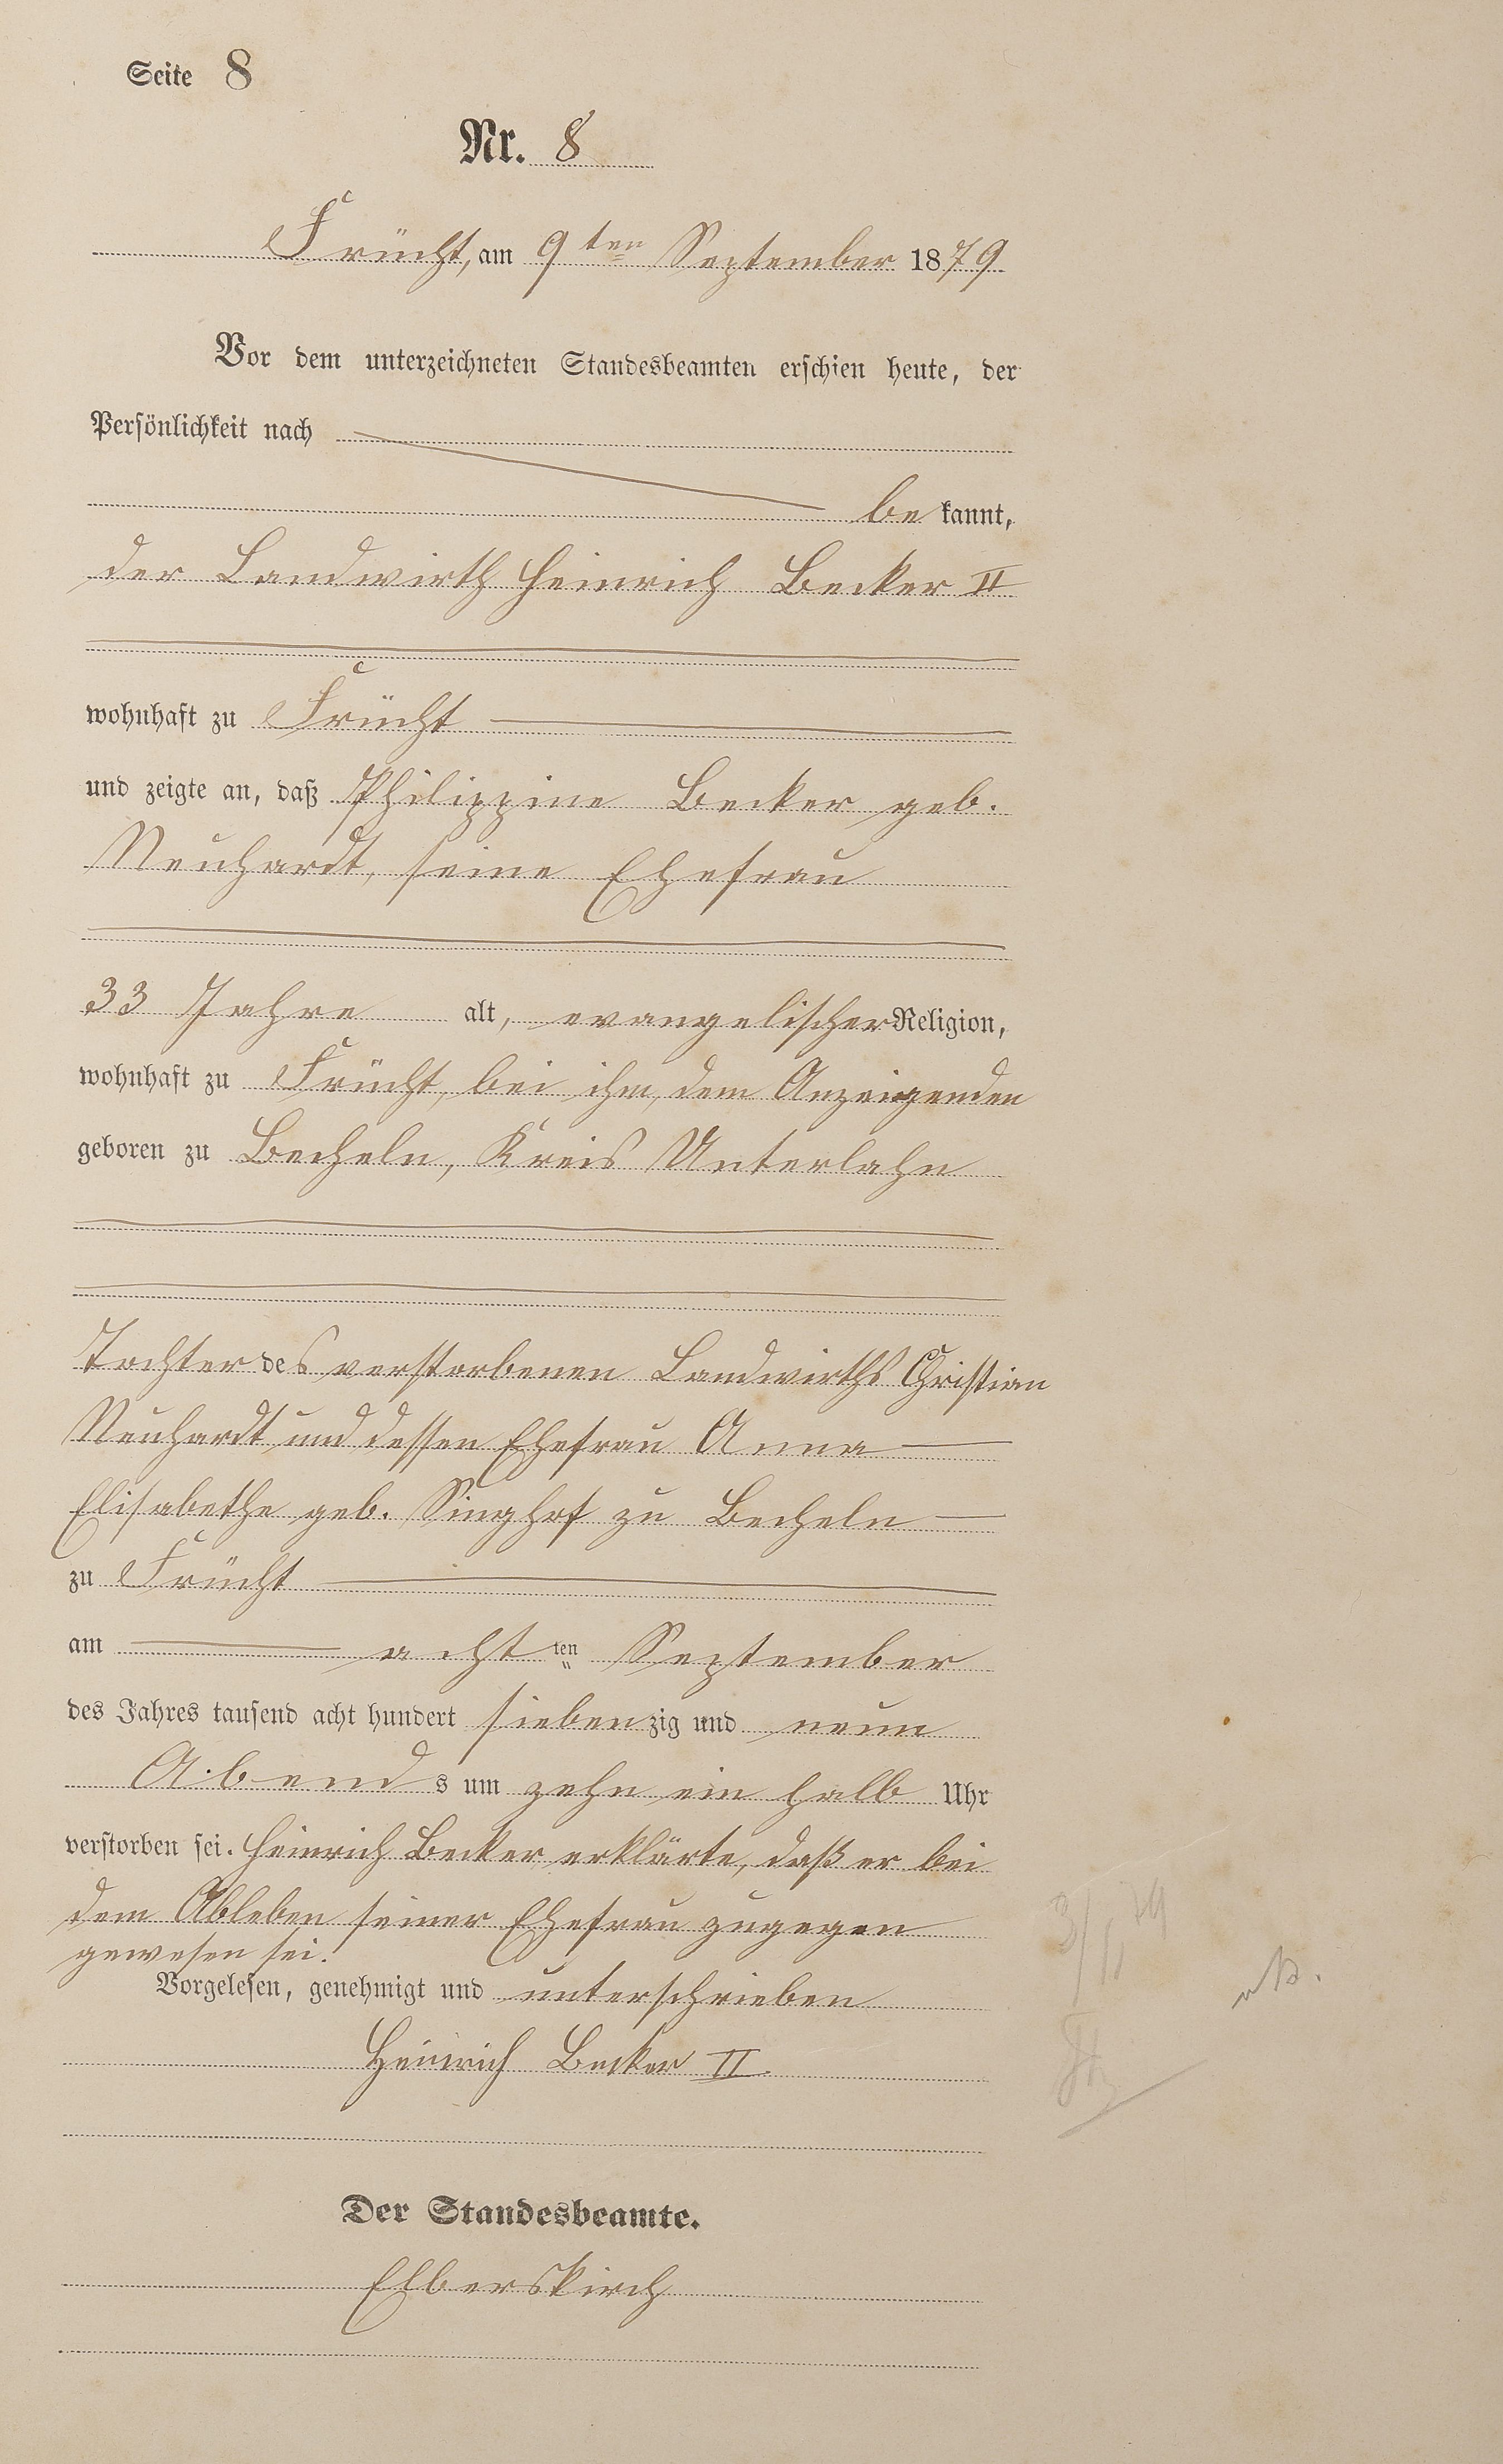 Seite 8
Nr. 8
Frücht, am 9ten September 1879
Vor dem unterzeichneten Standesbeamten erschien heute, der
Persönlichkeit nach
be kannt,
der Landwirth Heinrich Becker II
wohnhaft zu Frücht
und zeigte an, daß Philippine Becker geb.
Neuhardt, seine Ehefrau
33 Jahre alt, evangelischer Religion,
wohnhaft zu Frücht, bei ihm, dem Anzeigenden
geboren zu Becheln, Kreis Unterlahn
Tochter des verstorbenen Landwirths Christian
Neuhardt und dessen Ehefrau Anna
Elisabethe geb. Singhof zu Becheln
zu Frücht
am acht ten September
des Jahres tausend acht hundert sieben zig und neun
Abend s um zehn ein halb Uhr
verstorben sei. Heinrich Becker erklärte, daß er bei
dem Ableben seiner Ehefrau zugegen
gewesen sei.
Vorgelesen, genehmigt und unterschrieben
Heinrich Becker II.
Der Standesbeamte.
Elberskirch